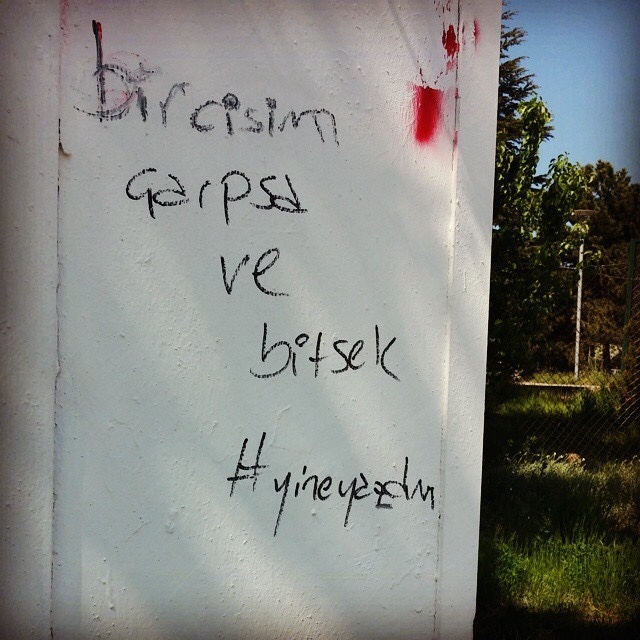 bir cisim
çarpsa
ve
bitsek
#yineyazdım